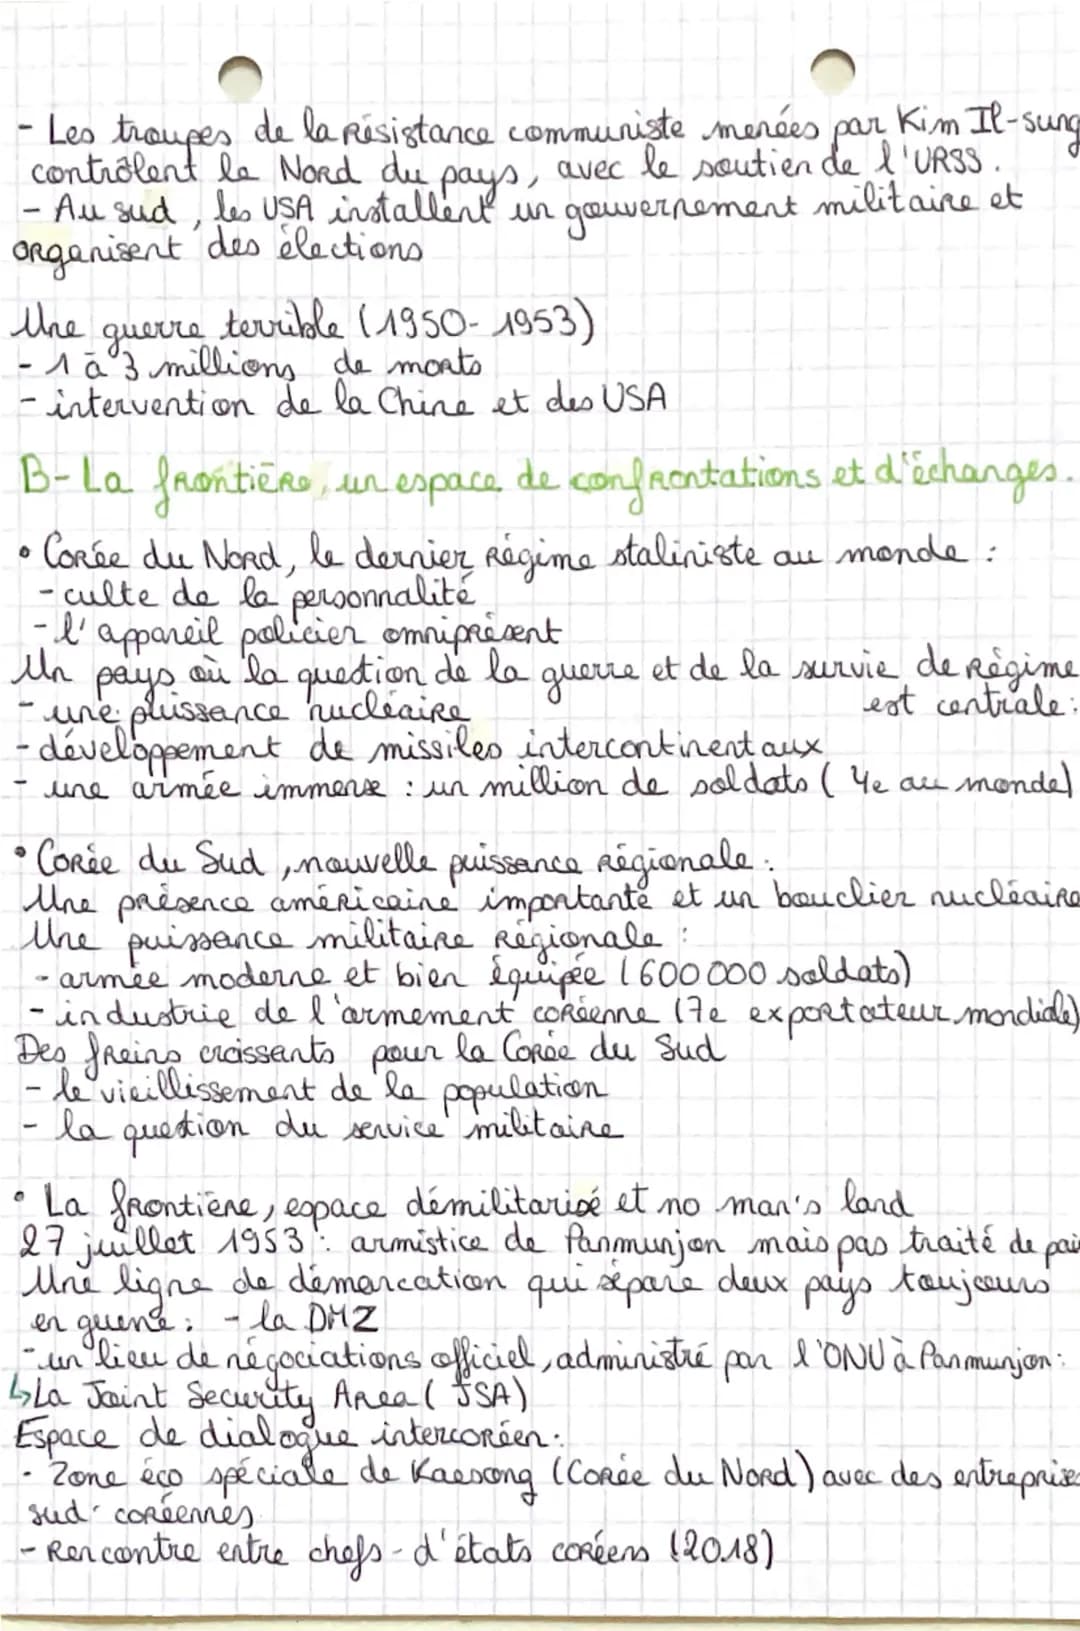 - Les troupes de la résistance communiste menées par Kim Il-sung
contrôlent le Nord du pays, avec le soutien de l'URSS.
- Au sud, les USA installent un gouvernement militaire et
organisent des élections
Une guerre terrible (1950-1953)
- 1 à 3 millions de morts
- intervention de la Chine et des USA
B- La frontière, un espace de confrontations et d'échanges.
• Corée du Nord, le dernier régime staliniste au monde :
- culte de la personnalité
- l'appareil policier omniprésent
Un pays où la question de la guerre et de la survie de régime
est centrale:
- une puissance nucléaire
- développement de missiles intercontinentaux
- une armée immense : un million de soldats (4e au monde)
• Corée du Sud, nouvelle puissance régionale :
Une présence américaine importante et un bouclier nucléaire
Une puissance militaire régionale :
- armée moderne et bien équipée (600 000 soldats)
- industrie de l'armement coréenne (7e exportateur mondiale)
Des freins croissants pour la Corée du Sud
- le vieillissement de la population
- la question du service militaire
• La frontière, espace démilitarisé et no man's land
27 juillet 1953 : armistice de Panmunjon mais pas traité de paix
Une ligne de démarcation qui sépare deux pays toujours
en guerre : - la DMZ
- un lieu de négociations officiel, administré par l'ONU à Panmunjon :
↳ La Joint Security Area (JSA)
Espace de dialogue intercoréen :
- Zone éco spéciale de Kaesong (Corée du Nord) avec des entreprises
sud-coréennes
- Rencontre entre chefs-d'états coréens (2018)